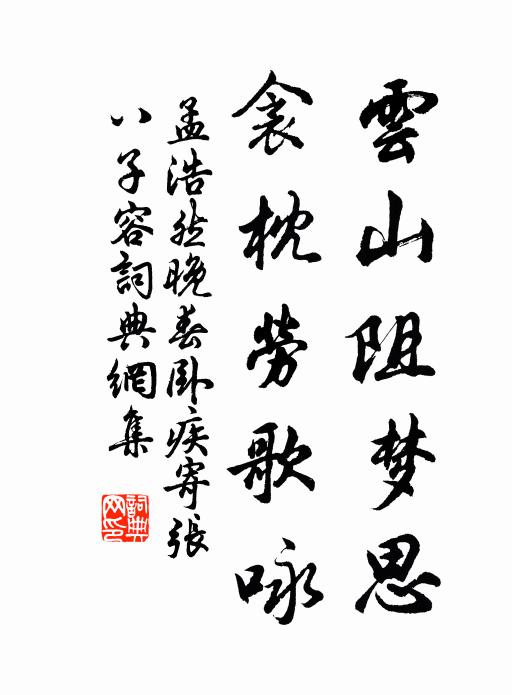 雲山阻梦思
衾枕勞歌咏
孟浩然晚春卧疾寄張
八子容詞典網集
詞典網印